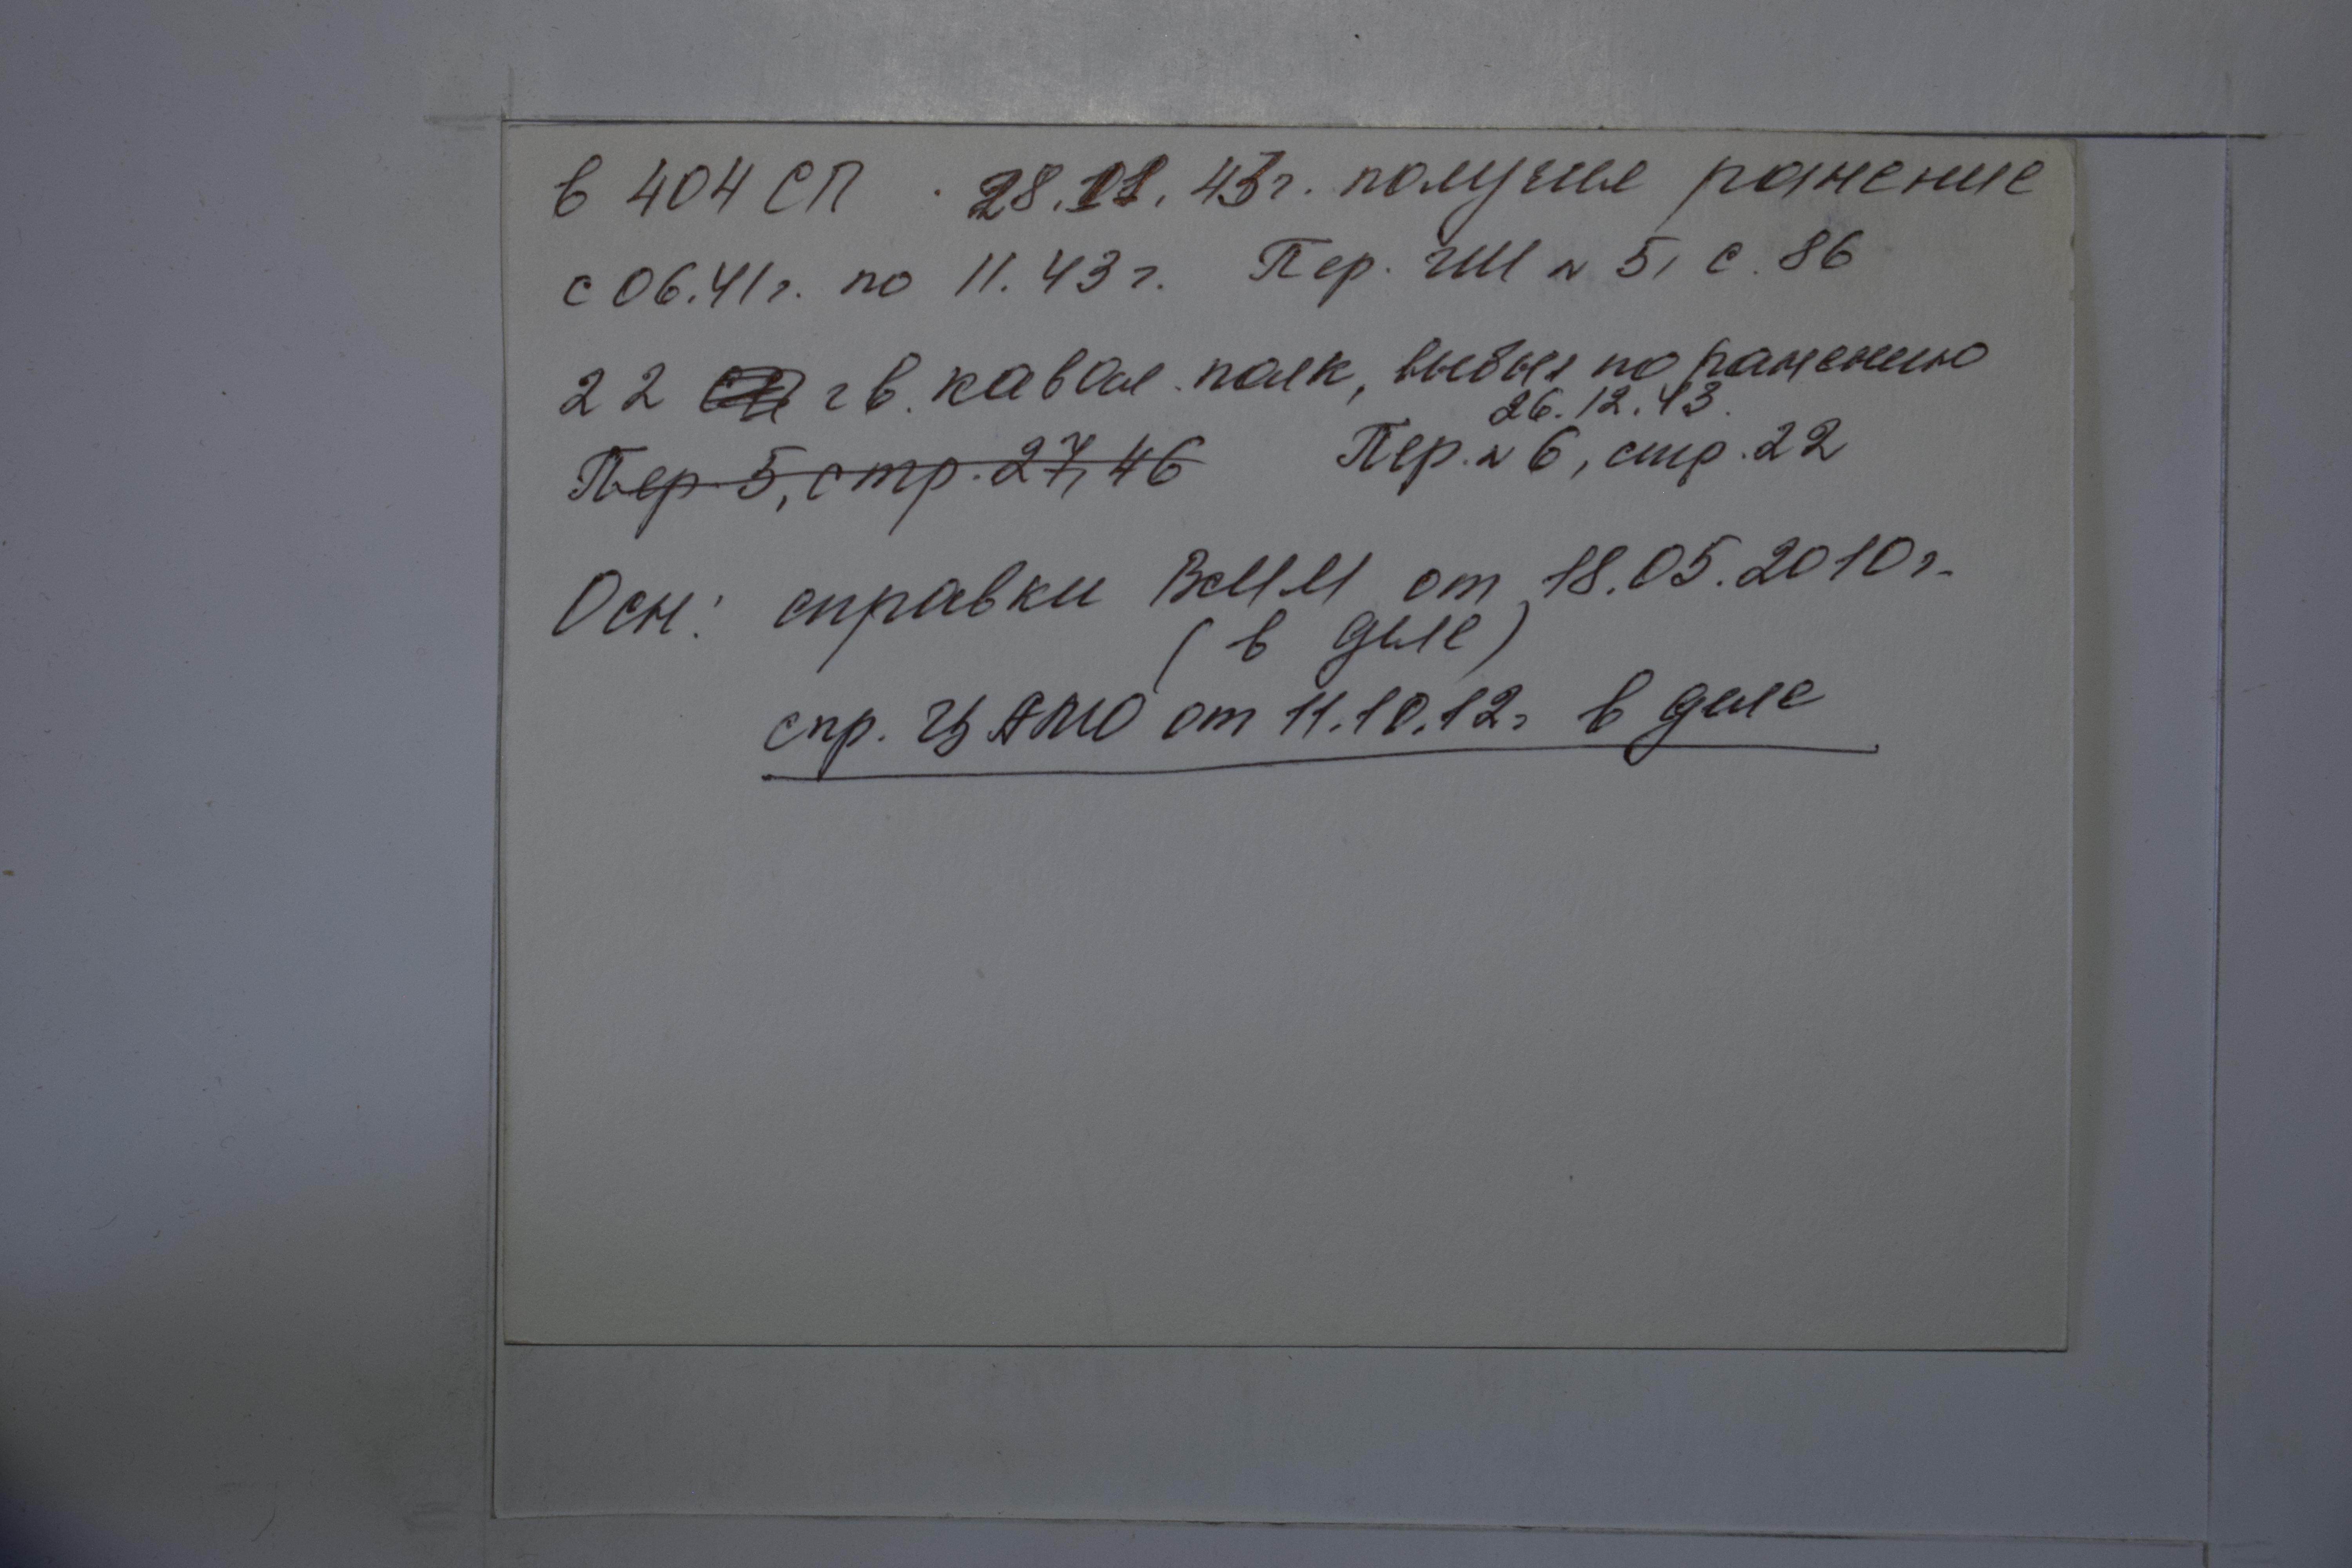 в 404 СП 28.11.43г. получил ранение
с 06.41г. по 11.43г. Пер. ГШ № 5, с. 86
22 гв. кавал. полк, выбыл по ранению
26.12.43.
Пер 5, стр. 27, 46 Пер. № 6, стр. 22
Осн: справки ВММ от 18.05.2010г.
(в деле)
спр. ЦАМО от 11.10.12г в деле